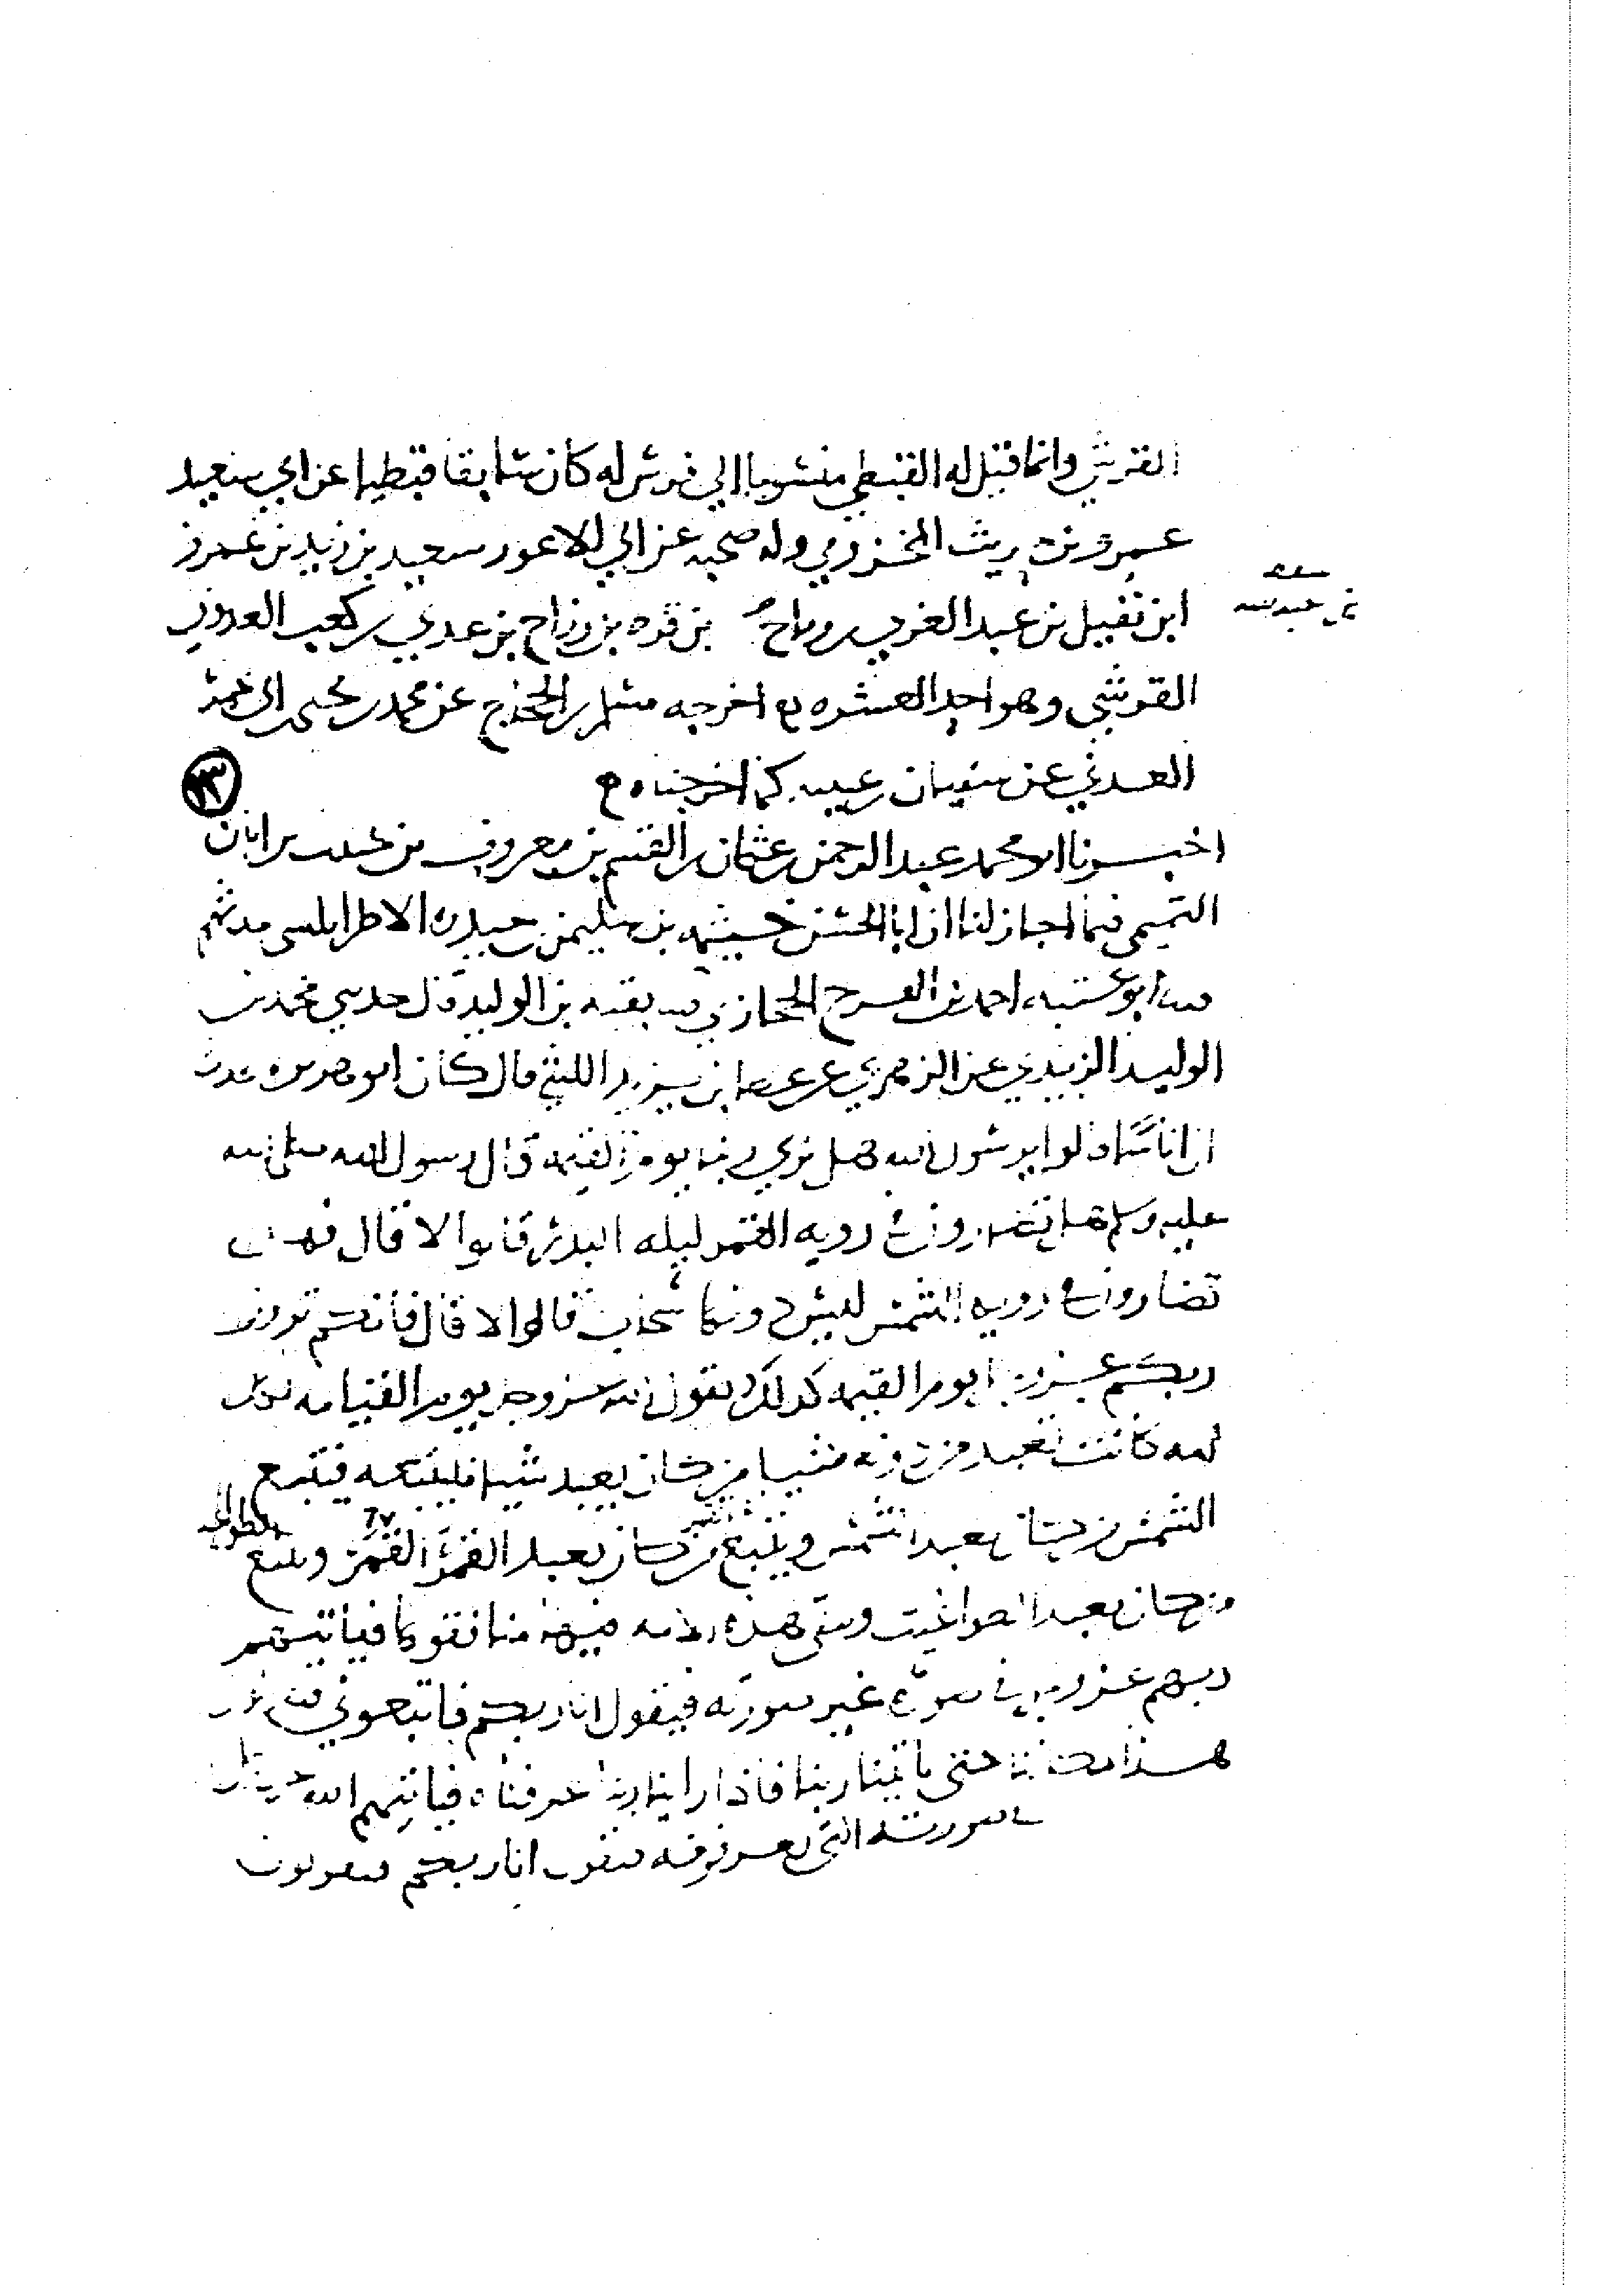 القرشي وانما قيل له القبطي منسوبا الي فرس له كان سابقا قبطيا عن ابي سعيد
عمرو بن حريث المخزومي وله صحبه عن ابي الاعور سعيد بن زيد بن عمرو
ابن نفيل بن عبد العزي بن رياح بن قره بن رزاح بن عدي بن كعب العدوي
بن عبد الله
القرشي وهو احد العشره اخرجه مسلم بن الحجاج عن محمد بن يحيى بن ابي عمر
العدني عن سفيان بن عيينه كما اخرجناه
٢٣
اخبرنا ابو محمد عبد الرحمن بن عثمان بن القسم بن معروف بن حبيب بن ابان
التميمي فيما اجاز لنا ان ابا الحسن خيثمه بن سليمن بن حيدره الاطرابلسي حدثهم
ابو عتبه احمد بن الفرج الحجازي بقيه بن الوليد قال حدثني محمد بن
الوليد الزبيدي عن الزهري عن عطا بن يزيد الليثي قال كان ابو هريره يحدث
ان اناسا قالوا يرسول الله هل نري ربنا يوم القيمه قال رسول الله صلى الله
عليه وسلم هل تضارون في رويه القمر ليله البدر قالوا لا قال فهل
تضارون في رويه الشمس ليس دونها سحاب قالوا لا قال فانكم ترون
ربكم عز وجل يوم القيمه كذلك يقول الله عز وجل يوم القيامه لكل
امه كانت تعبد من دونه شيا من كان يعبد شيا فليتبعه فيتبع
الشمس من كان يعبد الشمس ويتبع من كان يعبد القمر القمر ويتبع الطواغيت
من كان يعبد الطواغيت وتبقى هذه الامه فيها منافقوها فياتيهم
ربهم عز وجل في صورة غير صورته فيقول انا ربكم فاتبعوني فيقولون
هذا مكاننا حتى ياتينا ربنا فاذا راينا ربنا عرفناه فياتيهم الله عز وجل
في صورته التي يعرفونه فيقول انا ربكم فيقولون